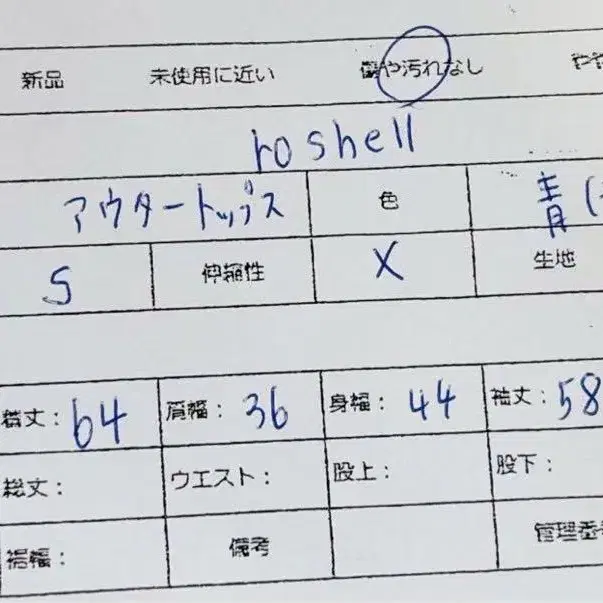 新品 未使用に近い 傷や汚れなし やや
roshell
アウタートップス 色 青(
S 伸縮性 X 生地
着丈: 64 肩幅: 36 身幅: 44 袖丈: 58
総丈: ウエスト: 股上: 股下:
裾幅: 備考 管理番